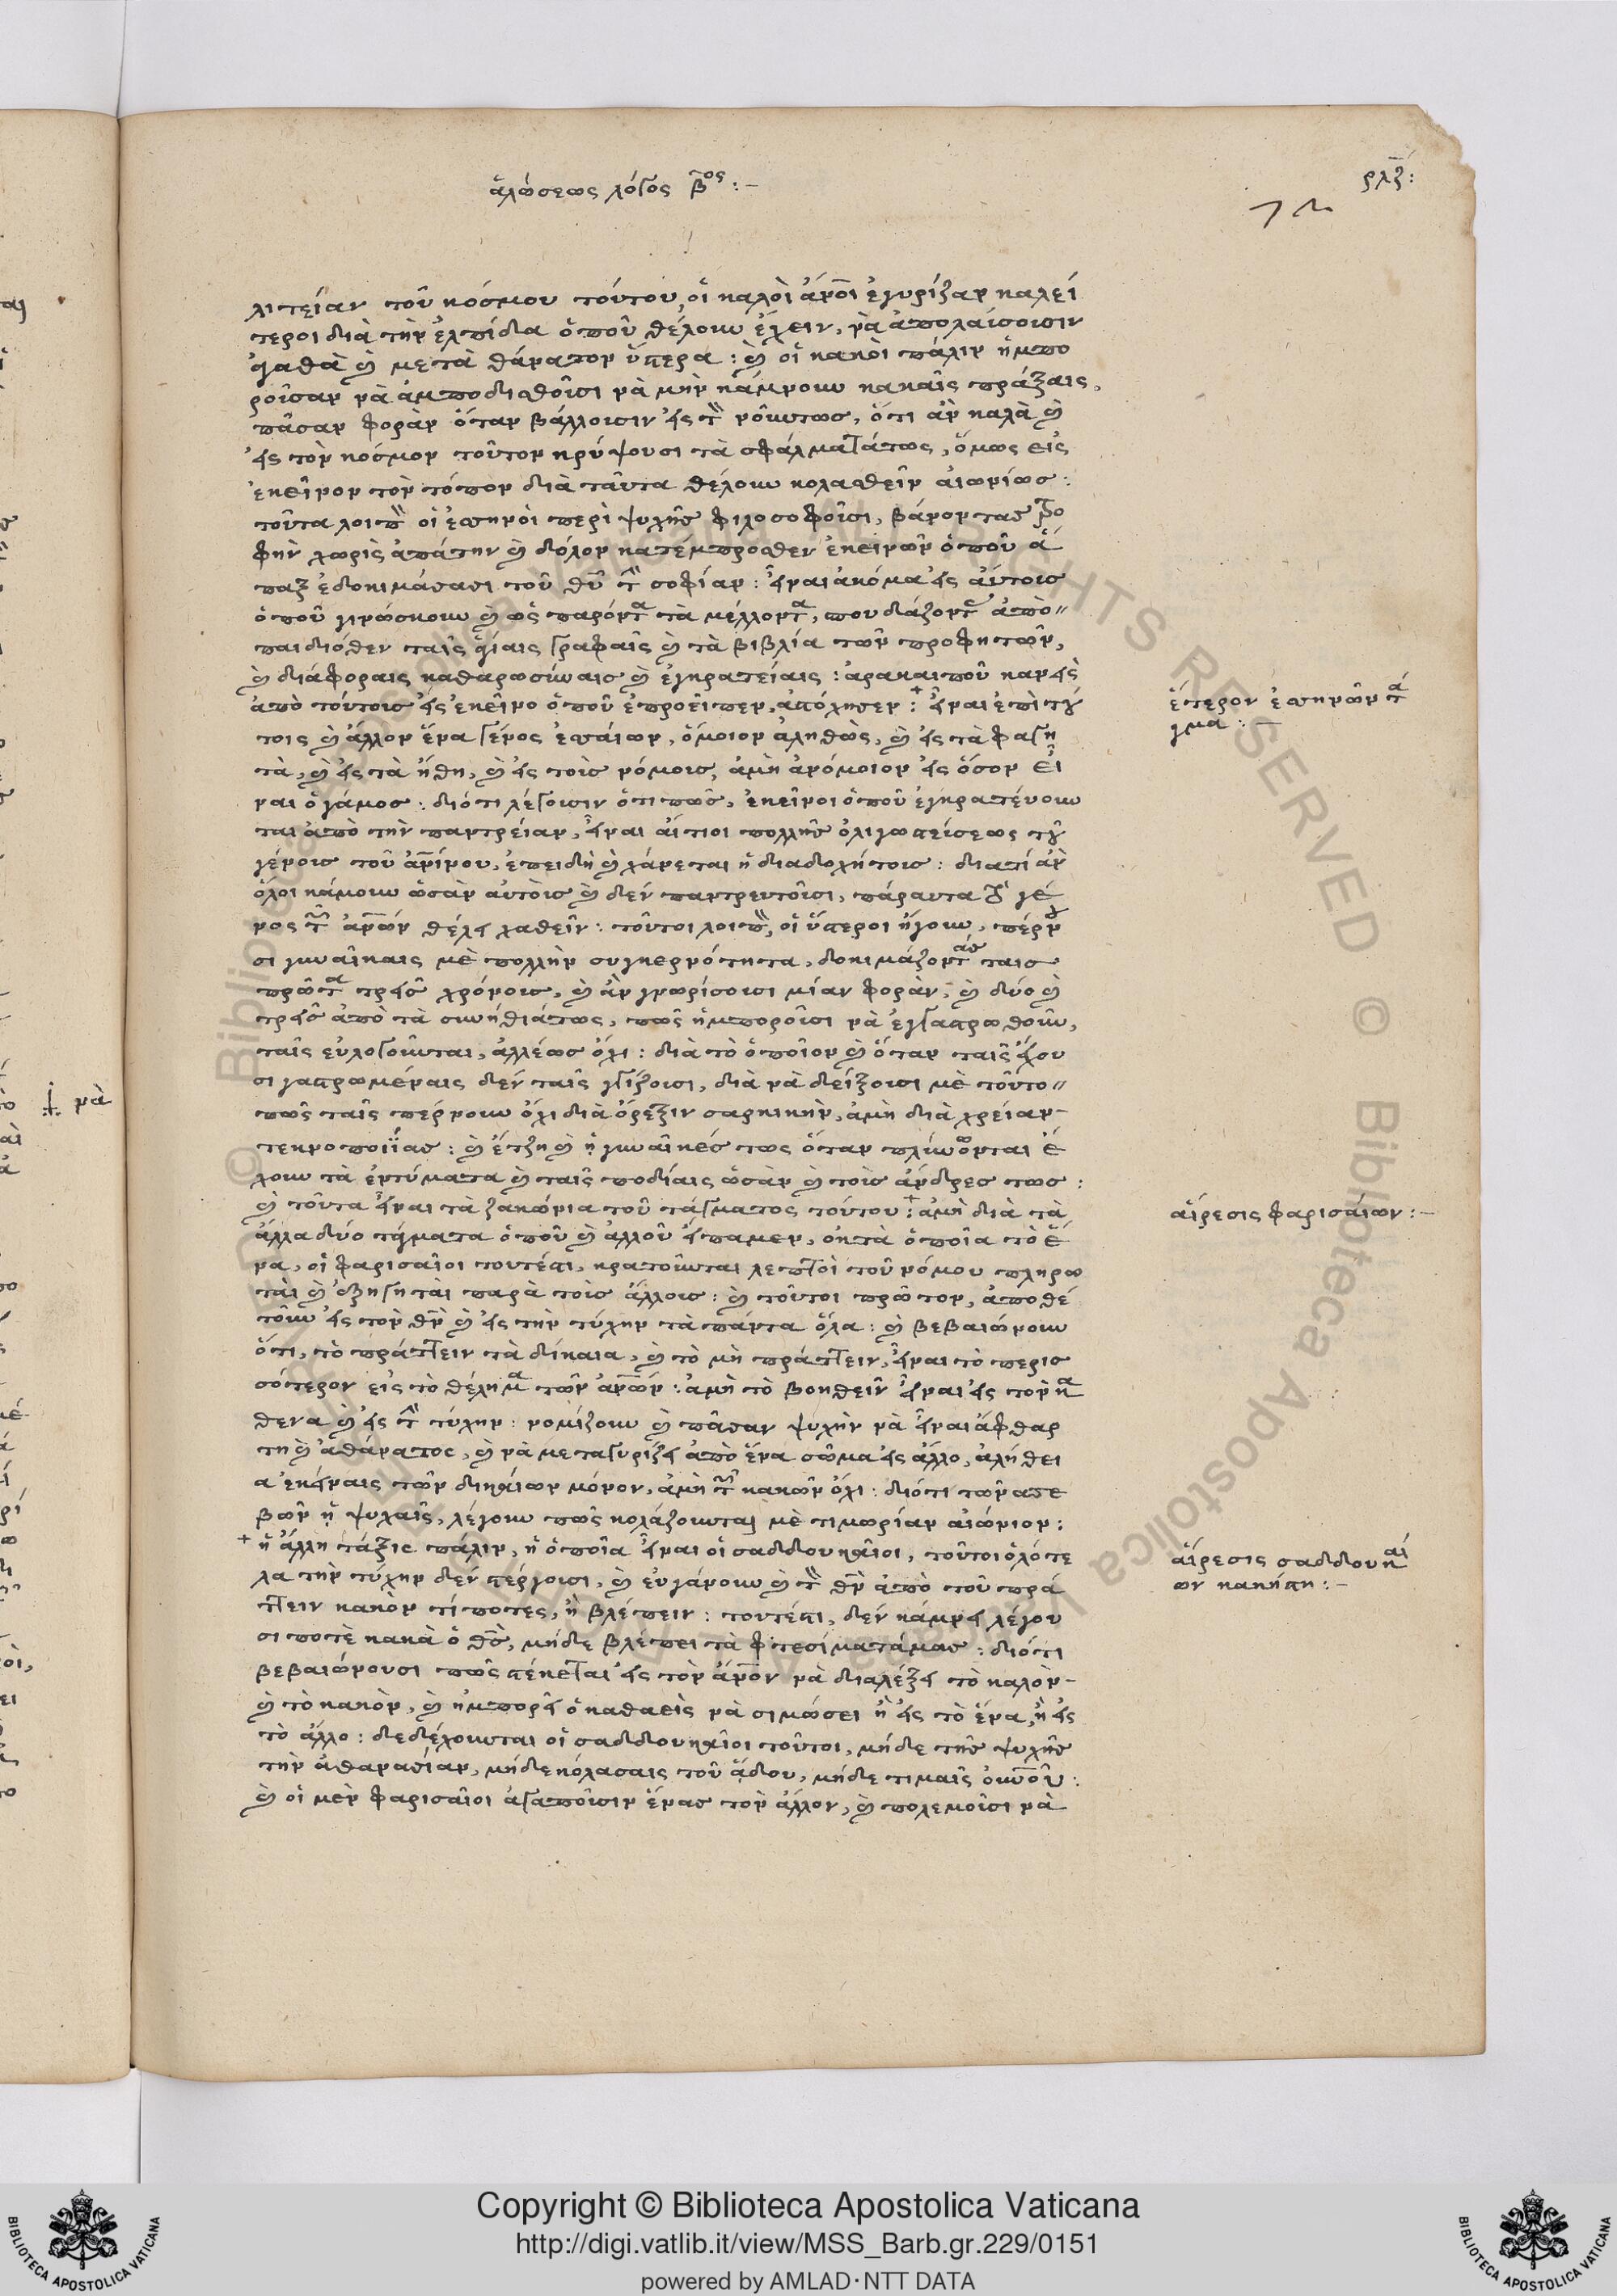 ἁλώσεως λόγος β^ος :–
ρλζ:
λιτείαν τοῦ κόσμου τούτου, οἱ καλοὶ ἄνοι ἐγυρίζαν καλεί
τεροι διὰ τὴν ἐλπίδα ὁποῦ θέλουν ἔχειν, νὰ ἀπολαύσουσιν
ἀγαθὰ καὶ μετὰ θάνατον ὕστερα : καὶ οἱ κακοὶ πάλιν ἠμπο
ροῦσαν νὰ ἀμποδισθοῦσι νὰ μὴν κάμνουν κακαῖς πράξαις,
πᾶσαν φορὰν ὅταν βάλλουσιν εἰς τὸν νοῦντως, ὅτι ἂν καλὰ καὶ
εἰς τὸν κόσμον τοῦτον κρύψουσι τὰ σφάλματάτως, ὅμως εἰς
ἐκεῖνον τὸν τόπον διὰ ταῦτα θέλουν κολασθεῖν αἰωνίως :
τοῦτα λοιπὸν οἱ ἐσηνοὶ περὶ ψυχῆς φιλοσοφοῦσι, βάνοντας τρο
φὴν χωρὶς ἀπάτην καὶ δόλον κατέμπροσθεν ἐκεινῶν ὁποῦ ἅ
παξ ἐδοκιμάσασι τοῦ θῦ τὴν σοφίαν : εἶναι ἀκόμα εἰς αὐτους
ὁποῦ γινώσκουν καὶ ὡς παρόντα τὰ μέλλοντα, σπουδάζοντες ἀπὸ
παιδιόθεν ταῖς ἁγίαις γραφαῖς καὶ τὰ βιβλία τῶν προφητῶν,
καὶ διάφοραις καθαρωσύναις καὶ ἐγκρατείαις : ἀρακαιποῦ κανεὶς
ἀπὸ τούτους εἰς ἐκεῖνο ὁποῦ ἐπροεῖπεν, ἀπόχησεν : + εἶναι ἐπὶ τού
ἕτερον ἐσηνῶν τά
γμα :–
τοις καὶ ἄλλον ἕνα γένος ἐσαίων, ὅμοιον ἀληθῶς, καὶ εἰς τὰ φαγη
τὰ, καὶ εἰς τὰ ἤθη, καὶ εἰς τοὺς νόμους, ἀμὴ ἀνόμοιον εἰς ὅσον εἶ
ναι ὁ γάμος : διότι λέγουσιν ὅτι πῶς, ἐκεῖνοι ὁποῦ ἐγκρατεύουν
ται ἀπὸ τὴν παντρείαν, εἶναι αἴτιοι πολλῆς ὀλιγωστείσεως τοῦ
γένους τοῦ ἀνίνου, ἐπειδὴ καὶ χάνεται ἡ διαδοχήτους : διατὶ ἂν
ὅλοι κάμουν ὡσὰν αὐτοὺς καὶ δὲν παντρευτοῦσι, πάραυτα τὸ γέ
νος τῶν ἀνῶν θέλει χαθεῖν : τοῦτοι λοιπὸν, οἱ ὕστεροι ἤγουν, πέρνου
σι γυναίκαις μὲ πολλὴν συγκερνότητα, δοκιμάζοντάς ταις
πρῶτα τρεῖς χρόνους, καὶ ἂν γνωρίσουσι μίαν φορὰν, καὶ δύο καὶ
τρεῖς ἀπὸ τὰ συνήθιάτως, πῶς ἠμποροῦσι νὰ ἐγγαστρωθοῦν,
ταῖς εὐλογοῦνται, ἀλλέως ὄχι : διὰ τὸ ὁποῖον καὶ ὅταν ταῖς ἔχου
σι γαστρωμέναις δὲν ταῖς γγίζουσι, διὰ νὰ δείξουσι μὲ τοῦτο
πῶς ταῖς πέρνουν ὄχι διὰ ὄρεξιν σαρκικὴν, ἀμὴ διὰ χρείαν
τεκνοποιΐας : καὶ ἔτζη καὶ ἡ γυναῖκές τως ὅταν πλύνωνται ἔ
χουν τὰ ἐντύματα καὶ ταῖς ποδίαις ὡσὰν καὶ τοὺς ἄνδρες τως :
καὶ τοῦτα εἶναι τὰ ζακώνια τοῦ τάγματος τούτου : + ἀμὴ διὰ τὰ
αἵρεσις φαρισαίων :–
ἄλλα δύο τάγματα ὁποῦ καὶ ἀλλοῦ εἴπαμεν, ἐκ τὰ ὁποῖα τὸ ἕ
να, οἱ φαρισαῖοι τουτέστι, κρατοῦνται λεπτοὶ τοῦ νόμου πληρω
ταὶ καὶ ἐξηγηταὶ παρὰ τοὺς ἄλλους : καὶ τοῦτοι πρῶτον, ἀποθέ
τουν εἰς τὸν θν̄ καὶ εἰς τὴν τύχην τὰ πάντα ὅλα : καὶ βεβαιώνουν
ὅτι, τὸ πράττειν τὰ δίκαια, καὶ τὸ μὴ πράττειν, εἶναι τὸ περισ
σότερον εἰς τὸ θέλημα τῶν ἀνῶν : ἀμὴ τὸ βοηθεῖν εἶναι εἰς τὸν κα
θενα καὶ εἰς τὴν τύχην : νομίζουν καὶ πᾶσαν ψυχὴν νὰ εἶναι ἄφθαρ
τη καὶ ἀθάνατος, καὶ νὰ μεταγυρίζει ἀπὸ ἕνα σῶμα εἰς ἄλλο, ἀλήθει
α ἐκείναις τῶν δικαίων μόνον, ἀμὴ τῶν κακῶν ὄχι : διότι τῶν ασε
βῶν ἡ ψυχαῖς, λέγουν πῶς κολάζουνται μὲ τιμωρίαν αἰώνιον :
+ ἡ ἄλλη τάξις πάλιν, ἡ ὁποῖα εἶναι οἱ σαδδουκαῖοι, τοῦτοι ὁλότε
αἵρεσις σαδδουκαί
ων κακήστη :–
λα τὴν τύχην δὲν στέργουσι, καὶ εὐγάνουν καὶ τὸν θν̄ ἀπὸ τοῦ πρά
ττειν κακὸν τίποτες, ἢ βλέπειν : τουτέστι, δὲν κάμνει λέγου
σι ποτὲ κακὰ ὁ θς̄, μήδε βλέπει τὰ φτεσίματάμας : διότι
βεβαιώνουσι πῶς στέκεται εἰς τὸν ἄνον νὰ διαλέξει τὸ καλὸν
καὶ τὸ κακὸν, καὶ ἠμπορεῖ ὁ καθαεὶς νὰ σιμώσει ἢ εἰς τὸ ἕνα, ἢ εἰς
τὸ ἄλλο : δεδέχουνται οἱ σαδδουκαῖοι τοῦτοι, μήδε τῆς ψυχῆς
τὴν ἀθανασίαν, μήδε κόλασαις τοῦ ἅδου, μήδε τιμαῖς οὐνοῦ :
καὶ οἱ μὲν φαρισαῖοι ἀγαποῦσιν ἕνας τὸν ἄλλον, καὶ πολεμοῦσι νὰ
νὰ
© Biblioteca Apostolica Vaticana
ALL RIGHTS RESERVED
Copyright © Biblioteca Apostolica Vaticana
http://digi.vatlib.it/view/MSS_Barb.gr.229/0151
powered by AMLAD·NTT DATA
BIBLIOTECA APOSTOLICA VATICANA
BIBLIOTECA APOSTOLICA VATICANA